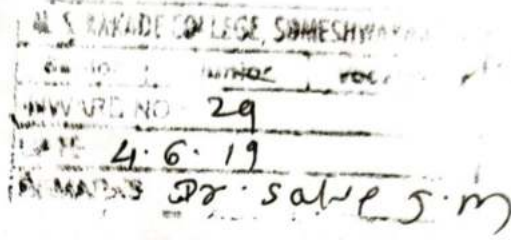 M. S. KAKADE COLLEGE, SOMESHWAR
INWARD NO 29
DATE 4.6.19
REMARKS Dr. Salve S.M